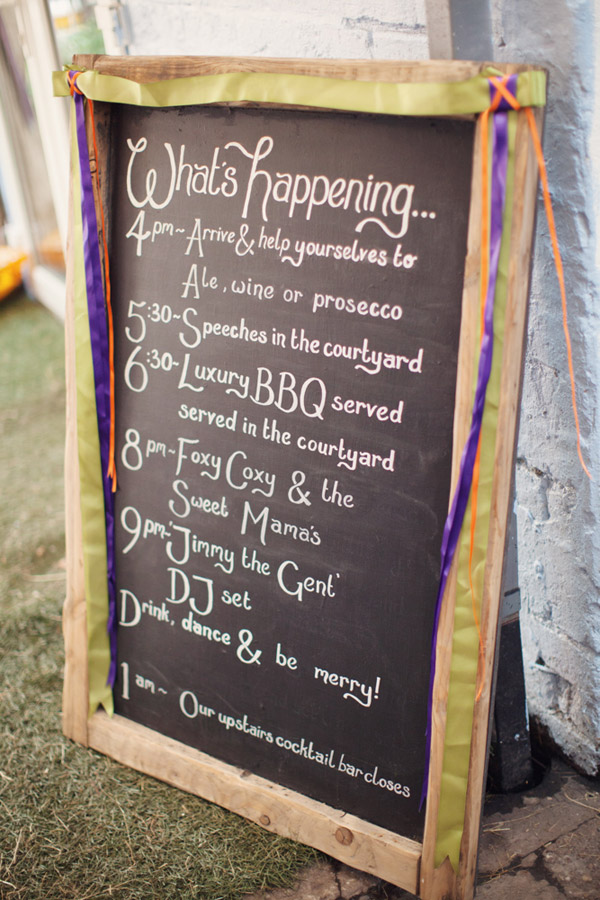 What's happening...
4pm~ Arrive & help yourselves to
Ale, wine or prosecco
5:30~ Speeches in the courtyard
6:30~ Luxury BBQ served
served in the courtyard
8pm~ Foxy Coxy & the
Sweet Mama's
9pm~ 'Jimmy the Gent'
DJ set
Drink, dance & be merry!
1am~ Our upstairs cocktail bar closes